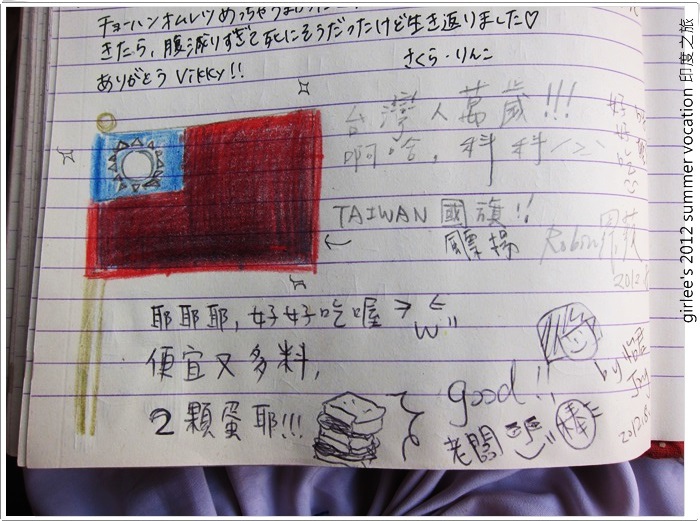 チョーハンオムレツめっちゃうま
きたら、腹減りすぎて死にそうだったけど生き返りました♡
ありがとう Vikky!!
さくら・りんこ
台灣人萬歲!!!
啊哈，科科
TAIWAN 國旗!!
飄揚
Robin
2012.8
耶耶耶，好好吃喔 > <
w"
便宜又多料，
2顆蛋耶!!!
good!!
老闆
棒
by
Joy
2012.8
girlee's 2012 summer vocation 印度之旅